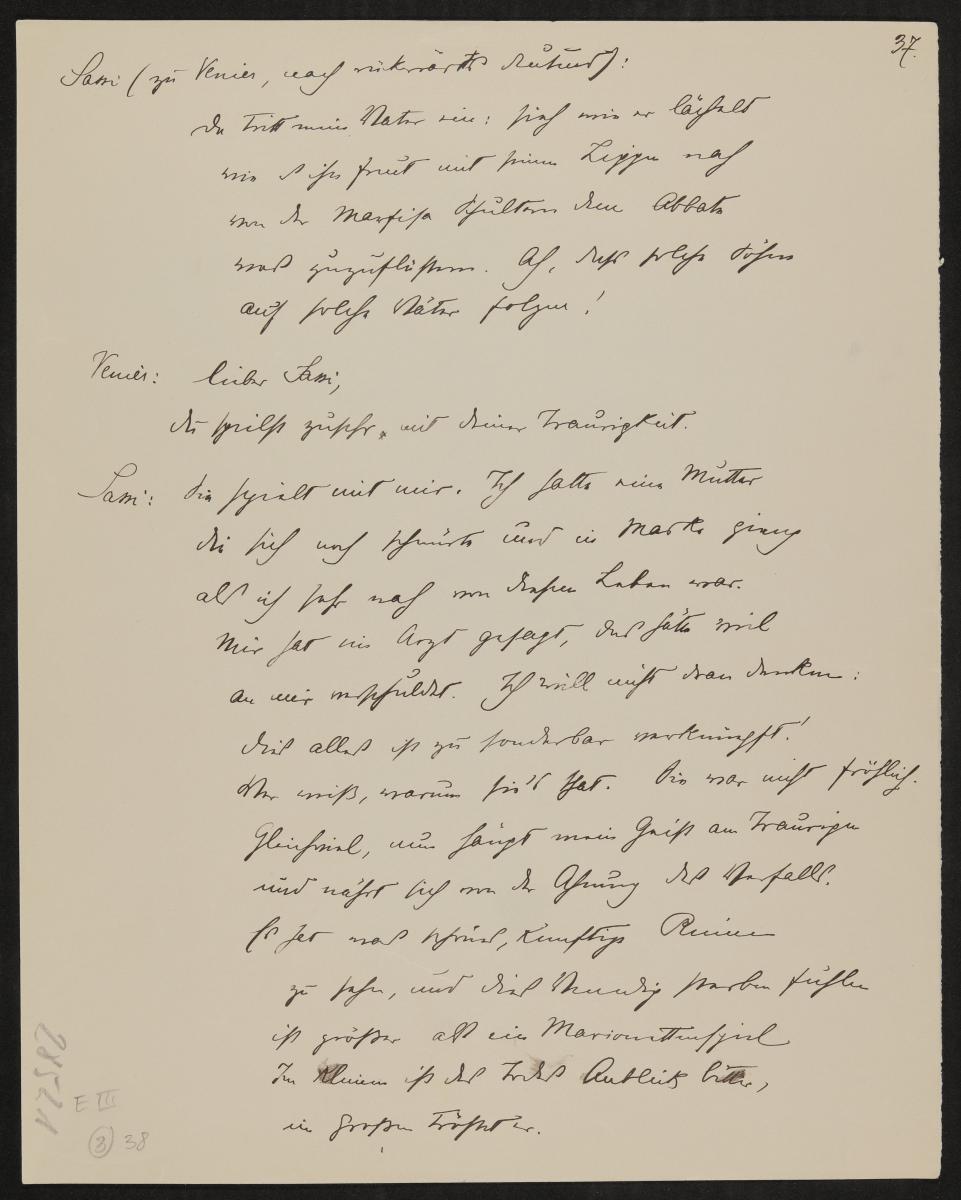 37.
Sassi (zu Venier, nach rückwärts deutend):
Da tritt mein Vater ein: sieh wie er lächelt
wie es ihn freut mit seinen Lippen nah
von der Marfisa Schultern dem Abbate
was zuzuflüstern. Ah, dass solche Söhne
auf solche Väter folgen!
Venier: Lieber Sassi,
du spielst zusehr mit deiner Traurigkeit.
Sassi: Sie spielt mit mir. Ich hatte eine Mutter
die sich noch schnürte und in Maske gieng
als ich sehr nah von diesem Leben war.
Mir hat ein Arzt gesagt, das hätte viel
an mir verschuldet. Ich will nicht dran denken:
dies alles ist zu sonderbar verknüpft!
Wer weiß, warum sie's that. Sie war nicht fröhlich.
Gleichviel, nun hängt mein Geist am Traurigen
und nährt sich von der Ahnung des Verfalls.
Es hat was schönes, künftige Ruinen
zu sehn, und dies Venedig sterben fühlen
ist größer als ein Marionettenspiel
Im Kleinen ist des Todes Anblick bitter,
im Großen tröstet er.
28521
E III
3 38